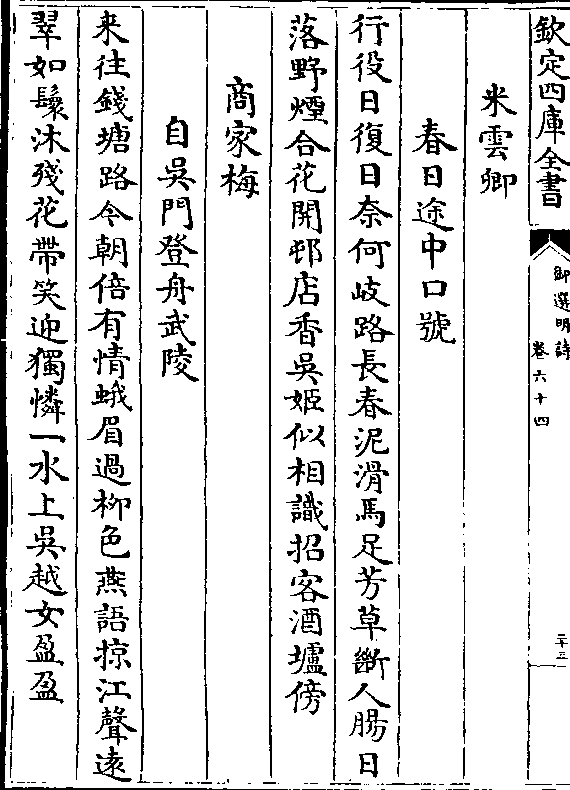 欽定四庫全書
御選明詩
卷六十四
二十三
米雲卿
春日途中口號
行役日復日奈何岐路長春泥滑馬足芳草斷人腸日
落野煙合花開邨店香吳姬似相識招客酒壚傍
商家梅
自吳門登舟武陵
来往錢塘路今朝倍有情蛾眉過栁色燕語掠江聲逺
翠如鬟沐殘花帶笑迎獨憐一水上吳越女盈盈